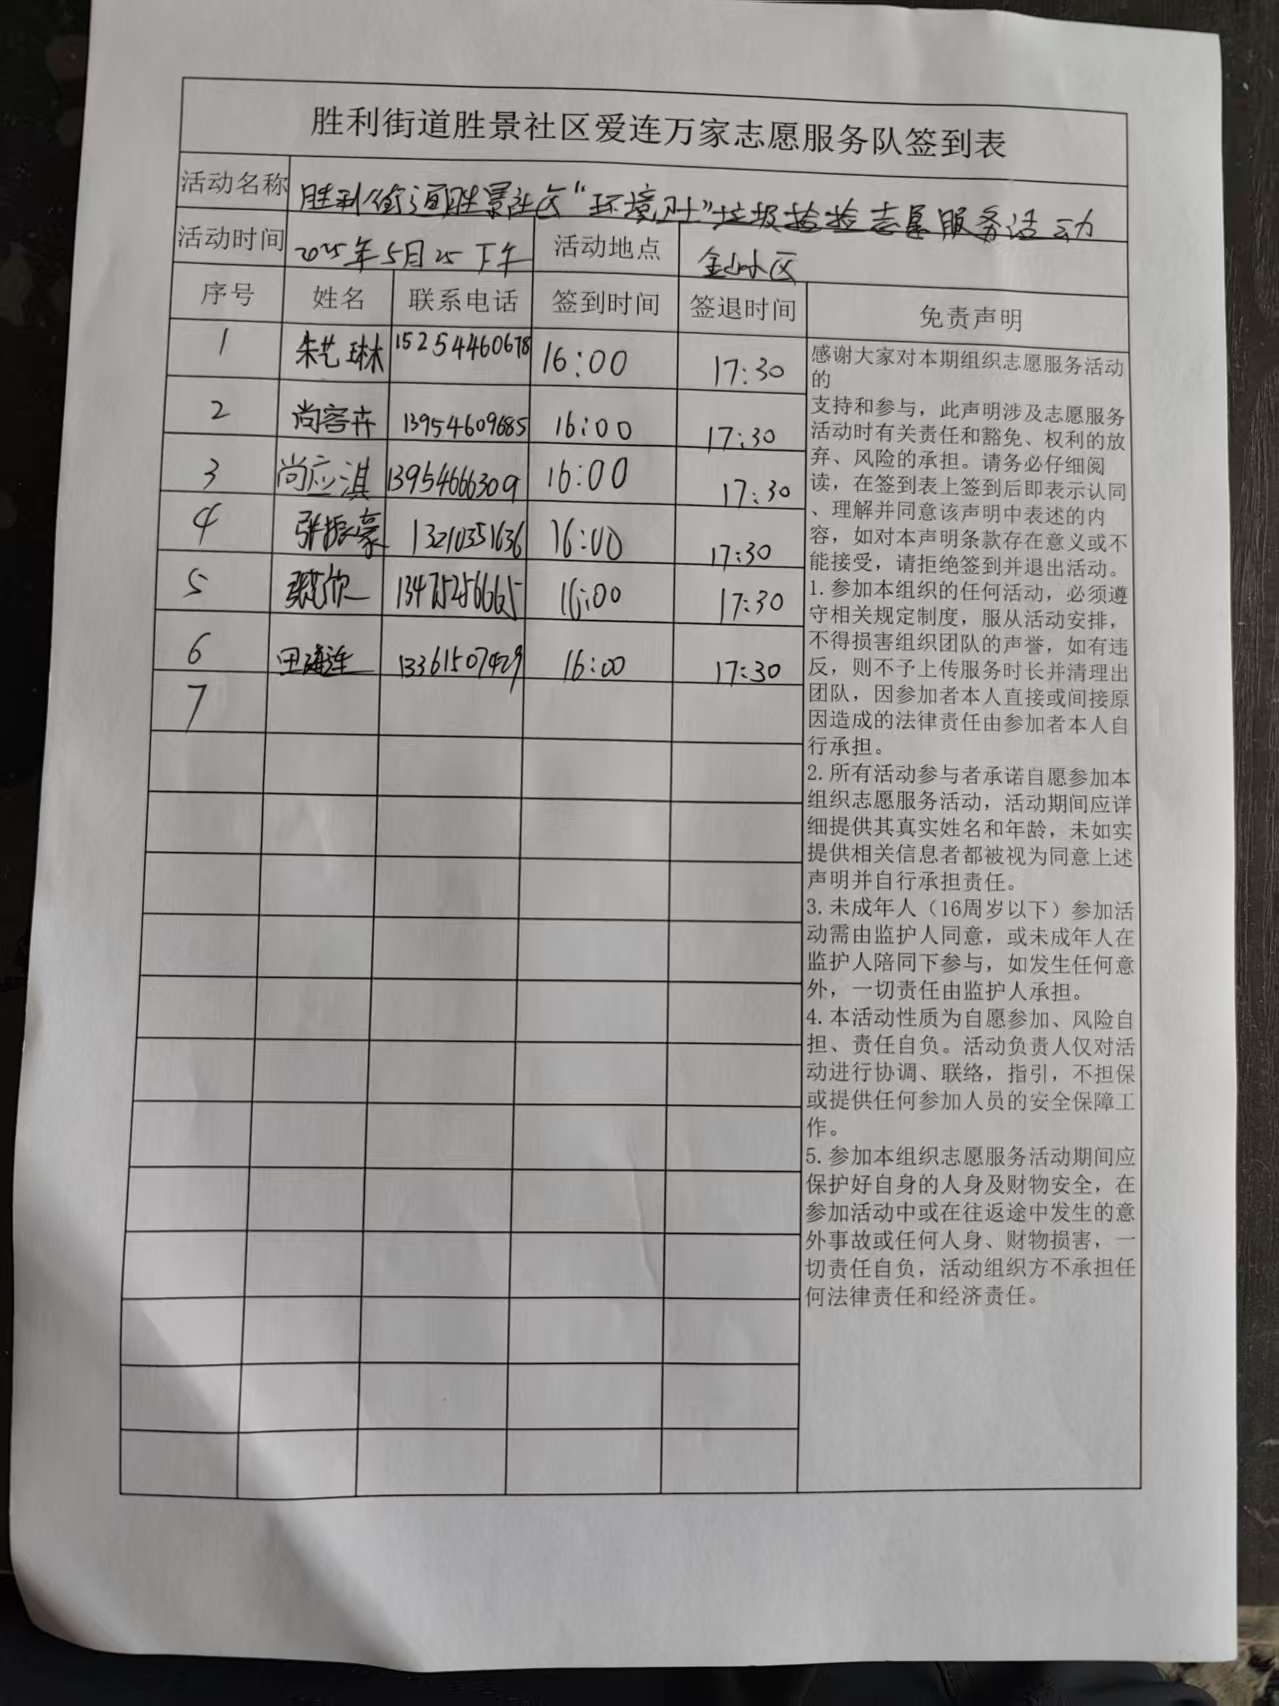 胜利街道胜景社区爱连万家志愿服务队签到表
活动名称 胜利街道胜景社区“环境卫士”垃圾捡捡志愿服务活动
活动时间 2025年5月25下午 活动地点 金山小区
序号 姓名 联系电话 签到时间 签退时间 免责声明
1 朱艺琳 15254460678 16:00 17:30
2 尚容卉 13954609685 16:00 17:30
3 尚应淇 13954666309 16:00 17:30
4 张振豪 13210351636 16:00 17:30
5 13475256665 16:00 17:30
6 田海连 13361507429 16:00 17:30
7
感谢大家对本期组织志愿服务活动
的
支持和参与，此声明涉及志愿服务
活动时有关责任和豁免、权利的放
弃、风险的承担。请务必仔细阅
读，在签到表上签到后即表示认同
、理解并同意该声明中表述的内
容，如对本声明条款存在意义或不
能接受，请拒绝签到并退出活动。
1.参加本组织的任何活动，必须遵
守相关规定制度，服从活动安排，
不得损害组织团队的声誉，如有违
反，则不予上传服务时长并清理出
团队，因参加者本人直接或间接原
因造成的法律责任由参加者本人自
行承担。
2.所有活动参与者承诺自愿参加本
组织志愿服务活动，活动期间应详
细提供其真实姓名和年龄，未如实
提供相关信息者都被视为同意上述
声明并自行承担责任。
3.未成年人（16周岁以下）参加活
动需由监护人同意，或未成年人在
监护人陪同下参与，如发生任何意
外，一切责任由监护人承担。
4.本活动性质为自愿参加、风险自
担、责任自负。活动负责人仅对活
动进行协调、联络，指引，不担保
或提供任何参加人员的安全保障工
作。
5.参加本组织志愿服务活动期间应
保护好自身的人身及财物安全，在
参加活动中或在往返途中发生的意
外事故或任何人身、财物损害，一
切责任自负，活动组织方不承担任
何法律责任和经济责任。